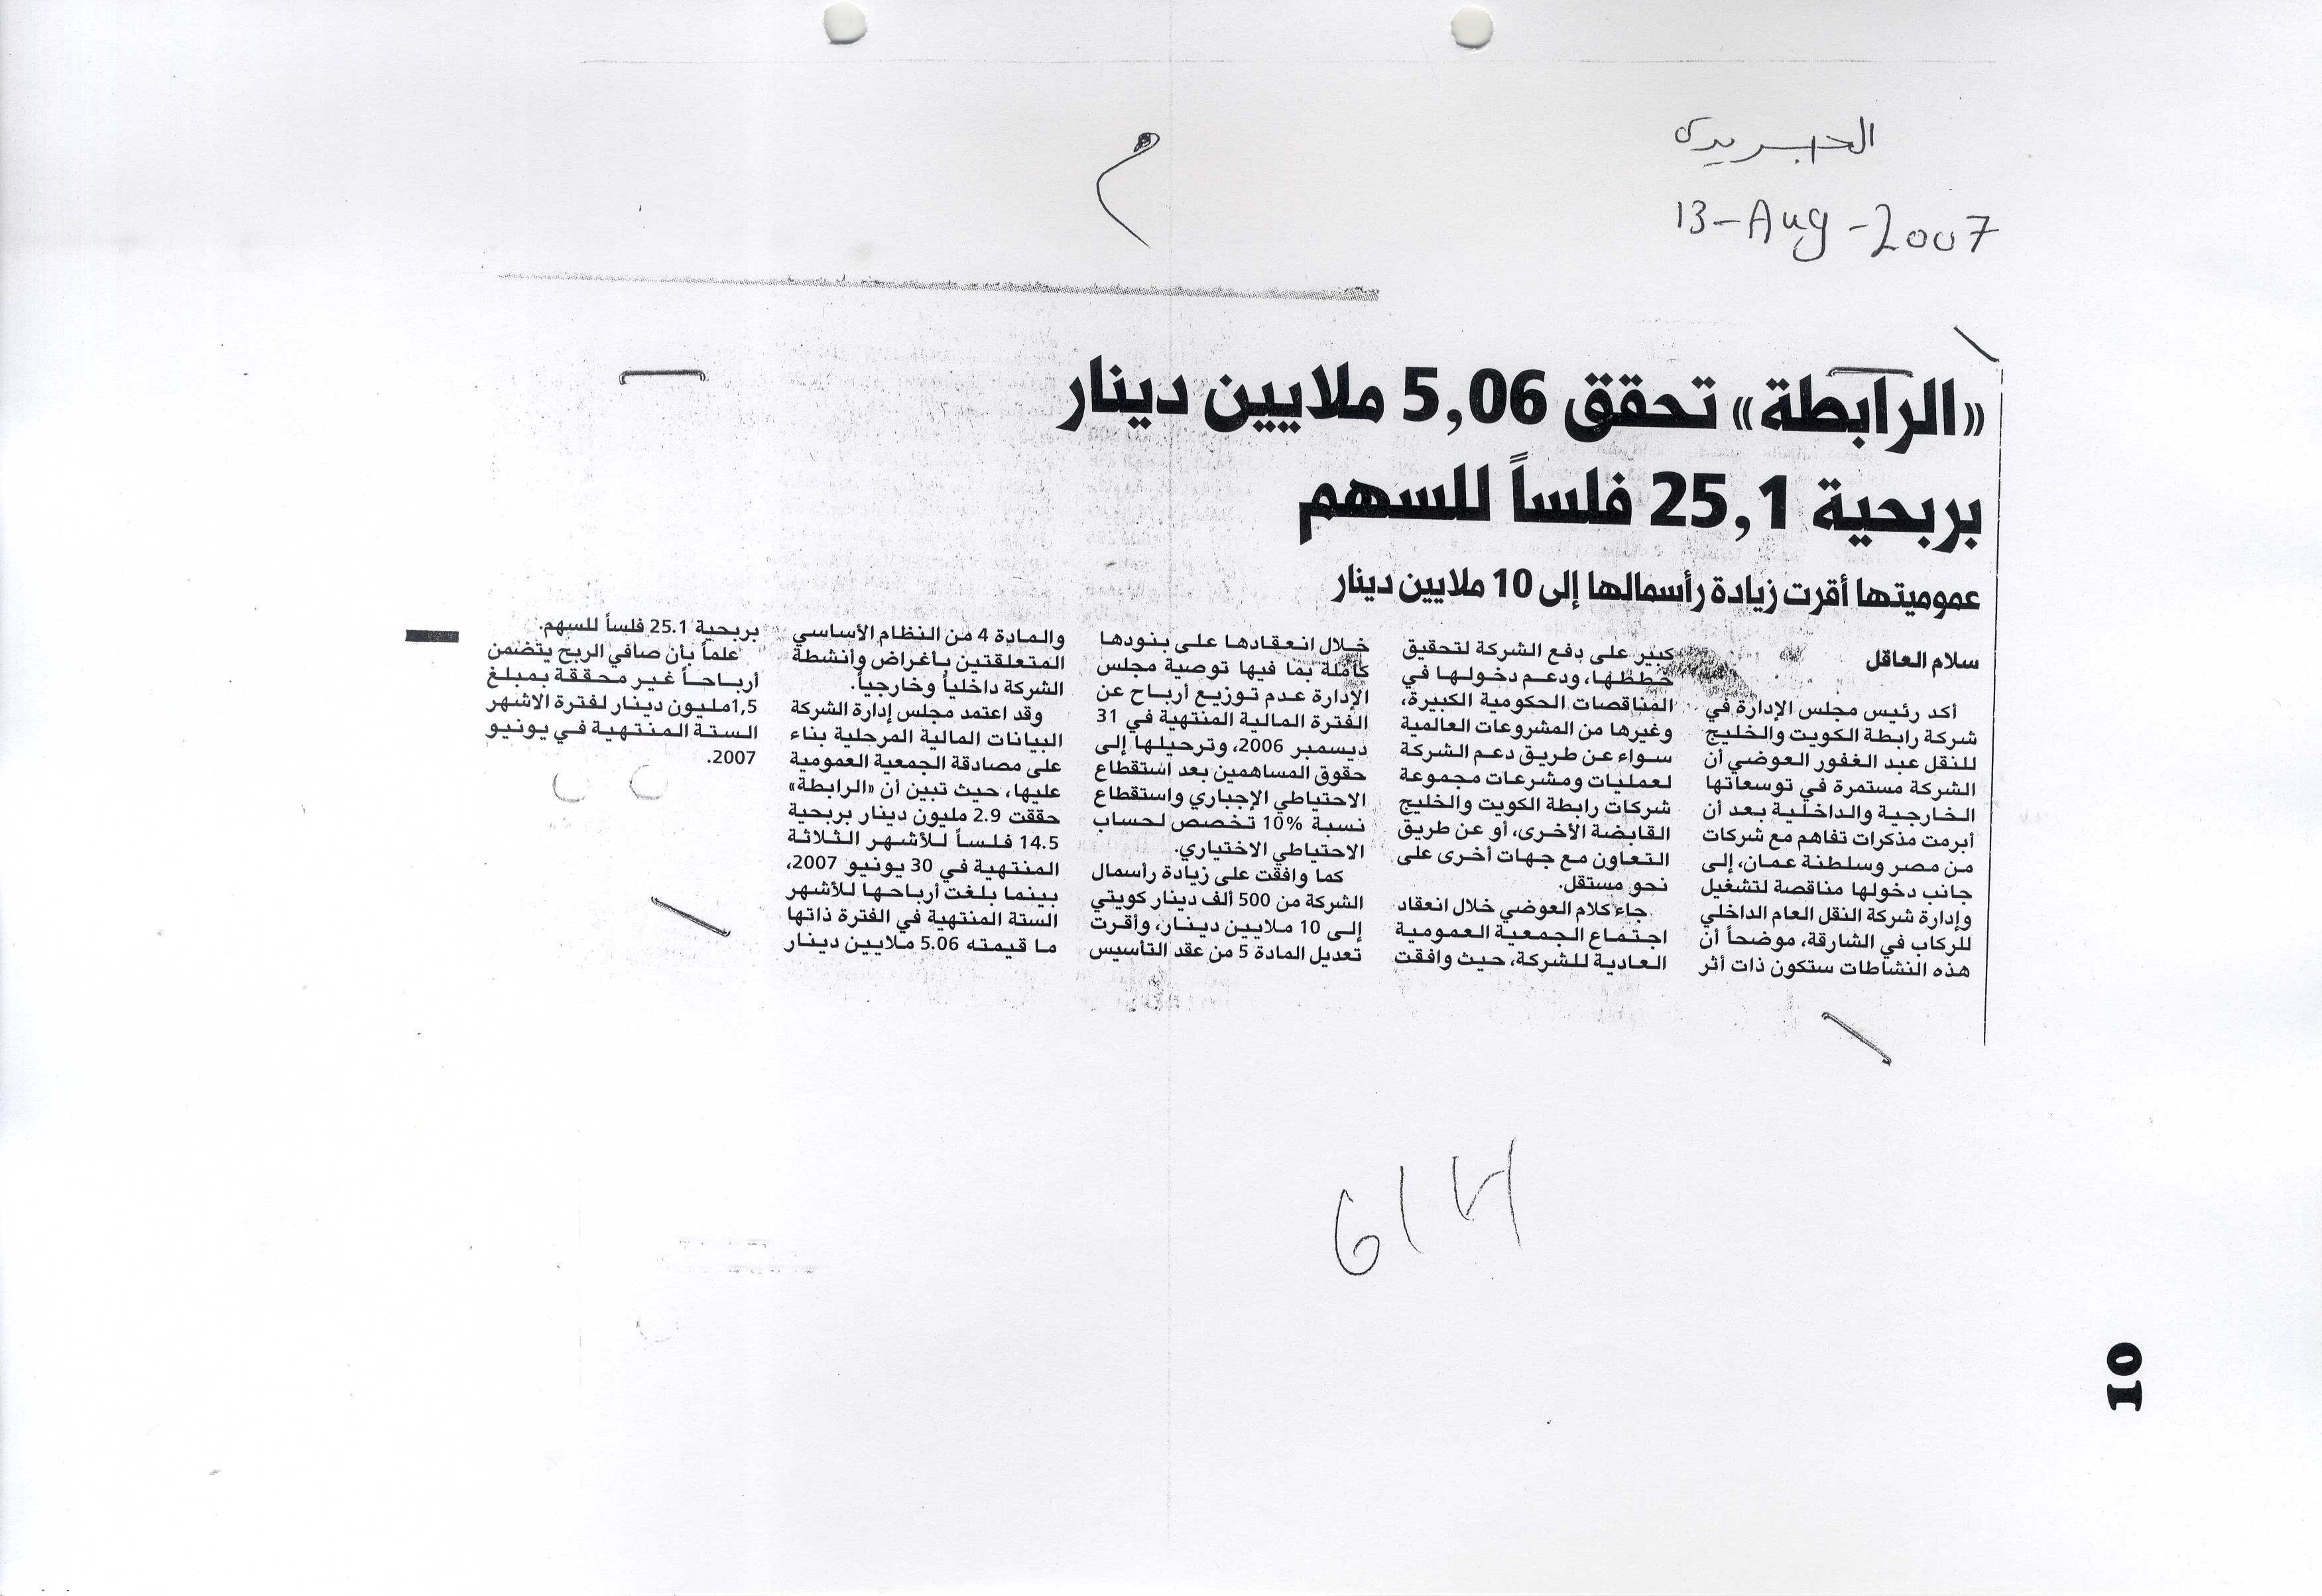 13-Aug-2007
«الرابطة» تحقق 5,06 ملايين دينار
بربحية 25,1 فلساً للسهم
عموميتها أقرت زيادة رأسمالها إلى 10 ملايين دينار
سلام العاقل
أكد رئيس مجلس الإدارة في
شركة رابطة الكويت والخليج
للنقل عبد الغفور العوضي أن
الشركة مستمرة في توسعاتها
الخارجية والداخلية بعد أن
أبرمت مذكرات تفاهم مع شركات
من مصر وسلطنة عمان، إلى
جانب دخولها مناقصة لتشغيل
وإدارة شركة النقل العام الداخلي
للركاب في الشارقة، موضحاً أن
هذه النشاطات ستكون ذات أثر
كبير على دفع الشركة لتحقيق
خططها، ودعم دخولها في
المناقصات الحكومية الكبيرة،
وغيرها من المشروعات العالمية
سواء عن طريق دعم الشركة
لعمليات ومشرعات مجموعة
شركات رابطة الكويت والخليج
القابضة الأخرى، أو عن طريق
التعاون مع جهات أخرى على
نحو مستقل.
جاء كلام العوضي خلال انعقاد
اجتماع الجمعية العمومية
العادية للشركة، حيث وافقت
خلال انعقادها على بنودها
كاملة بما فيها توصية مجلس
الإدارة عدم توزيع أرباح عن
الفترة المالية المنتهية في 31
ديسمبر 2006، وترحيلها إلى
حقوق المساهمين بعد استقطاع
الاحتياطي الإجباري واستقطاع
نسبة 10% تخصص لحساب
الاحتياطي الاختياري.
كما وافقت على زيادة رأسمال
الشركة من 500 ألف دينار كويتي
إلى 10 ملايين دينار، وأقرت
تعديل المادة 5 من عقد التأسيس
والمادة 4 من النظام الأساسي
المتعلقتين بأغراض وأنشطة
الشركة داخلياً وخارجياً.
وقد اعتمد مجلس إدارة الشركة
البيانات المالية المرحلية بناء
على مصادقة الجمعية العمومية
عليها، حيث تبين أن «الرابطة»
حققت 2.9 مليون دينار بربحية
14.5 فلساً للأشهر الثلاثة
المنتهية في 30 يونيو 2007،
بينما بلغت أرباحها للأشهر
الستة المنتهية في الفترة ذاتها
ما قيمته 5.06 ملايين دينار
بربحية 25.1 فلساً للسهم.
علماً بأن صافي الربح يتضمن
أرباحاً غير محققة بمبلغ
1,5مليون دينار لفترة الاشهر
الستة المنتهية في يونيو
2007.
10